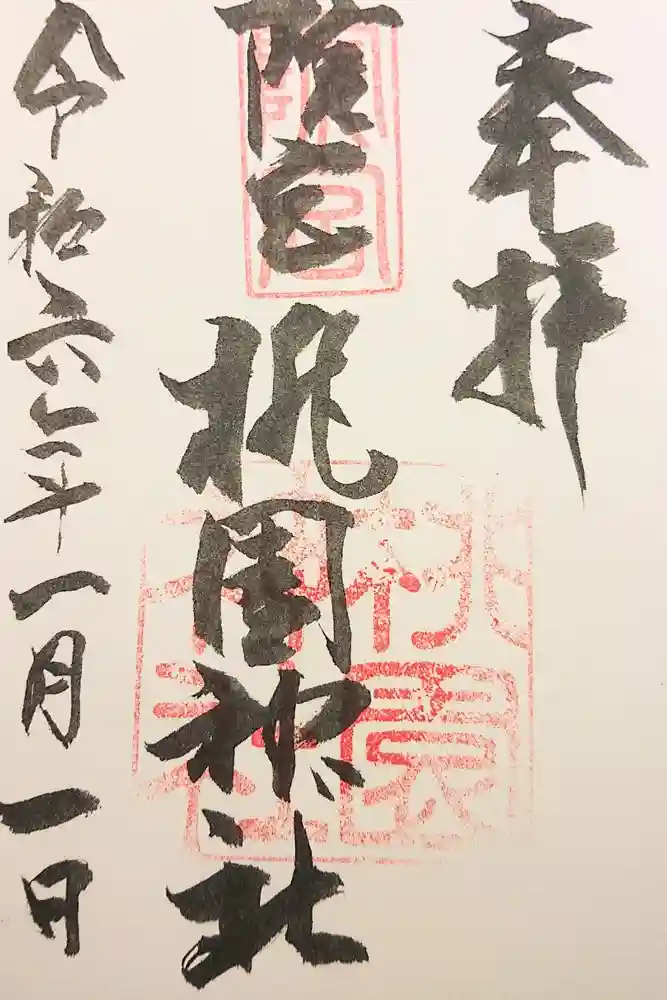 奉拝
院宮
桃園神社
令和六年一月一日